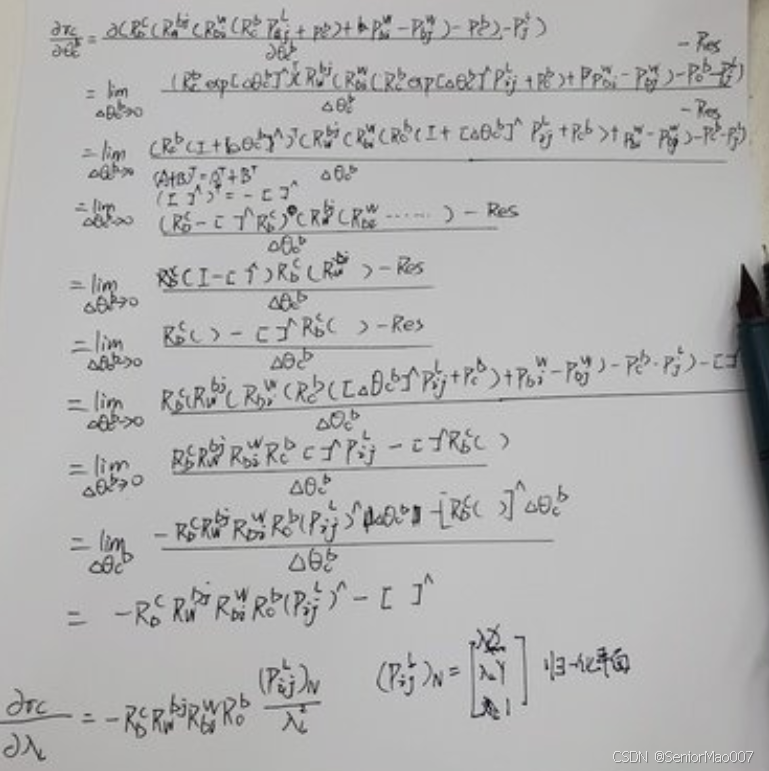 ∂rc/∂θ_c^b = ∂(R_b^c(R_w^{bj}(R_{bi}^w(R_c^b P_{ij}^L + P_c^b) + P_{bi}^w − P_{bj}^w) − P_c^b) − P_j^L) / ∂θ_c^b
− Res
= lim_{Δθ_c^b→0} (R_c^b exp[Δθ_c^b]^∧)^T R_w^{bj}(R_{bi}^w(R_c^b exp[Δθ_c^b]^∧ P_{ij}^L + P_c^b) + P_{bi}^w − P_{bj}^w) − P_c^b − P_j^L) / Δθ_c^b
− Res
= lim_{Δθ_c^b→0} (R_c^b(I + [Δθ_c^b]^∧)^T(R_w^{bj}(R_{bi}^w(R_c^b(I + [Δθ_c^b]^∧ P_{ij}^L + P_c^b) + P_{bi}^w − P_{bj}^w) − P_c^b − P_j^L) / Δθ_c^b
(A+B)^T = A^T + B^T
([ ]^∧)^T = −[ ]^∧
= lim_{Δθ_c^b→0} (R_b^c − [ ]^∧ R_b^c)(R_w^{bj}(R_{bi}^w ······) − Res / Δθ_c^b
= lim_{Δθ_c^b→0} R_b^c(I − [ ]^∧)R_b^c(R_w^{bj} ) − Res / Δθ_c^b
= lim_{Δθ_c^b→0} R_b^c( ) − [ ]^∧ R_b^c( ) − Res / Δθ_c^b
= lim_{Δθ_c^b→0} R_b^c(R_w^{bj}(R_{bi}^w(R_c^b([Δθ_c^b]^∧ P_{ij}^L + P_c^b) + P_{bi}^w − P_{bj}^w) − P_c^b · P_j^L) − [ ] / Δθ_c^b
= lim_{Δθ_c^b→0} R_b^c R_w^{bj} R_{bi}^w R_c^b [ ]^∧ P_{ij}^L − [ ]^∧ R_b^c( ) / Δθ_c^b
= lim_{Δθ_c^b} −R_b^c R_w^{bj} R_{bi}^w R_c^b (P_{ij}^L)^∧ Δθ_c^b − [R_b^c( )]^∧ Δθ_c^b / Δθ_c^b
= −R_b^c R_w^{bj} R_{bi}^w R_c^b (P_{ij}^L)^∧ − [ ]^∧
∂rc/∂λ_i = −R_b^c R_w^{bj} R_{bi}^w R_c^b (P_{ij}^L)_N / λ_i^2
(P_{ij}^L)_N = [ λX λY 1 ] 归一化平面
CSDN @SeniorMao007